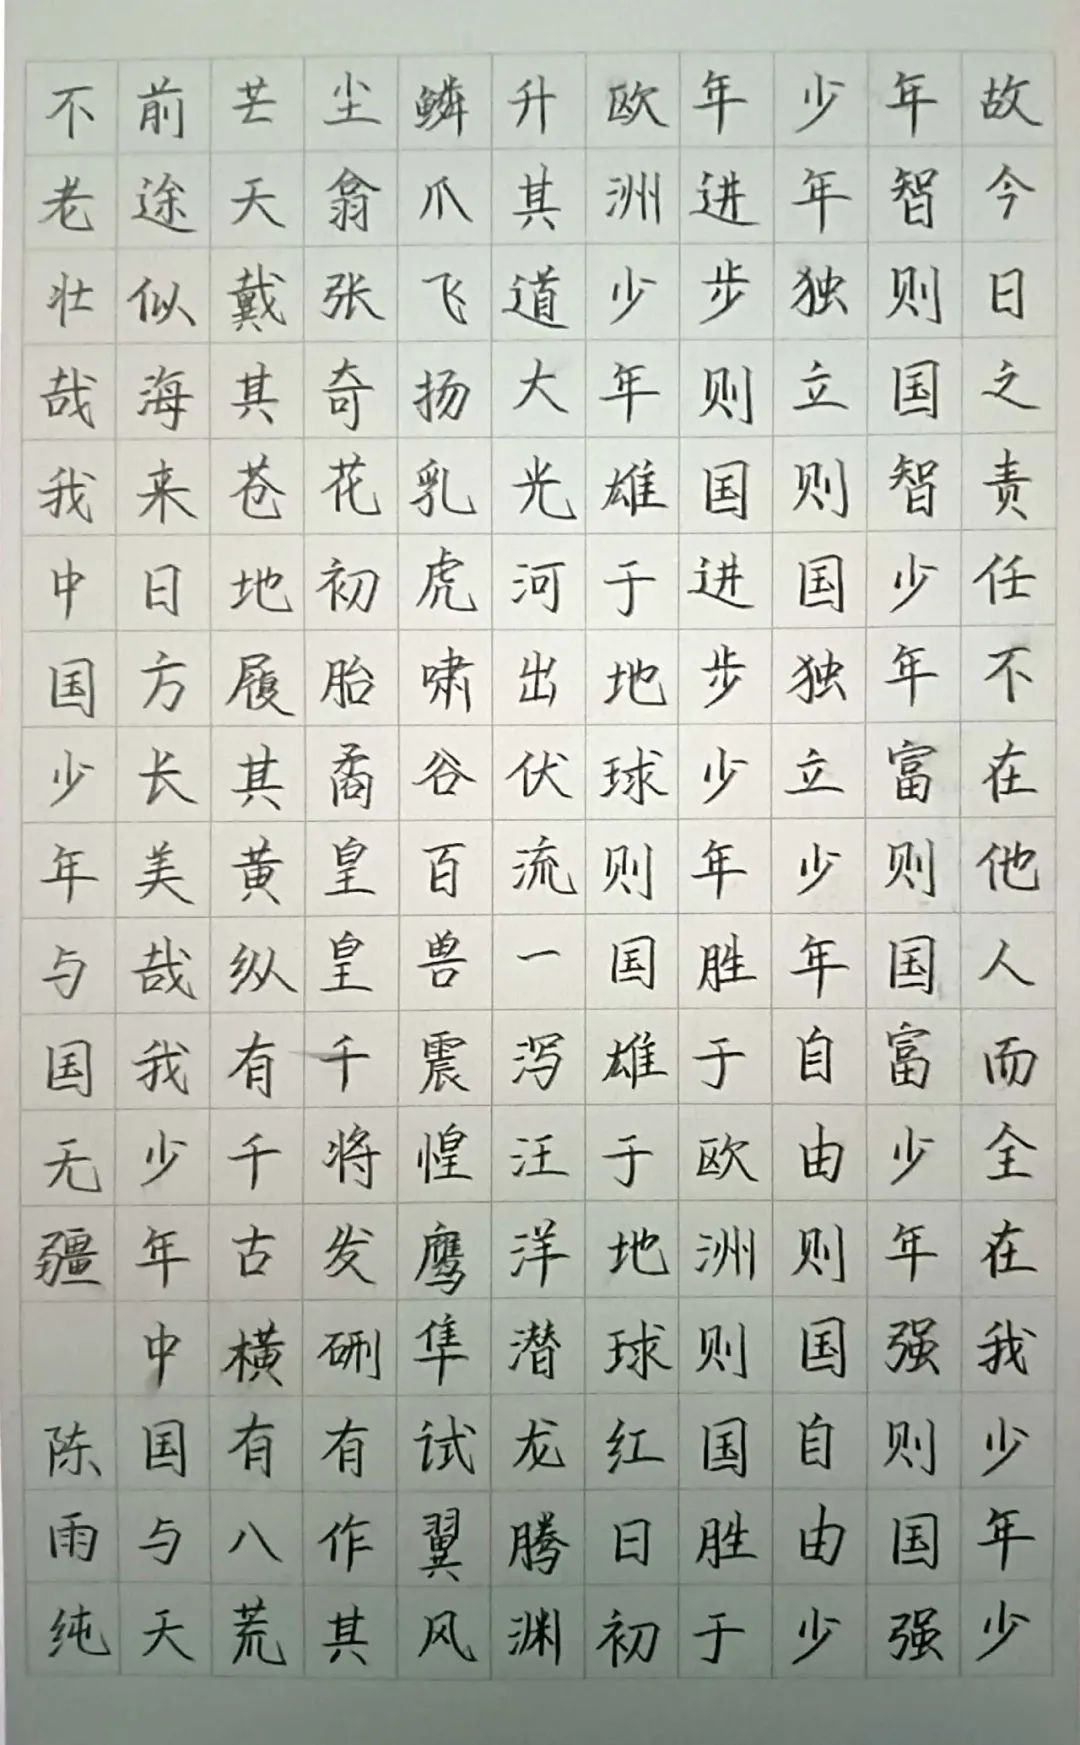 故今日之责任不在他人而全在我少年少
年智则国智少年富则国富少年强则国强
少年独立则国独立少年自由则国自由少
年进步则国进步少年胜于欧洲则国胜于
欧洲少年雄于地球则国雄于地球红日初
升其道大光河出伏流一泻汪洋潜龙腾渊
鳞爪飞扬乳虎啸谷百兽震惶鹰隼试翼风
尘翕张奇花初胎矞皇皇千将发硎有作其
芒天戴其苍地履其黄纵有千古横有八荒
前途似海来日方长美哉我少年中国与天
不老壮哉我中国少年与国无疆 陈雨纯